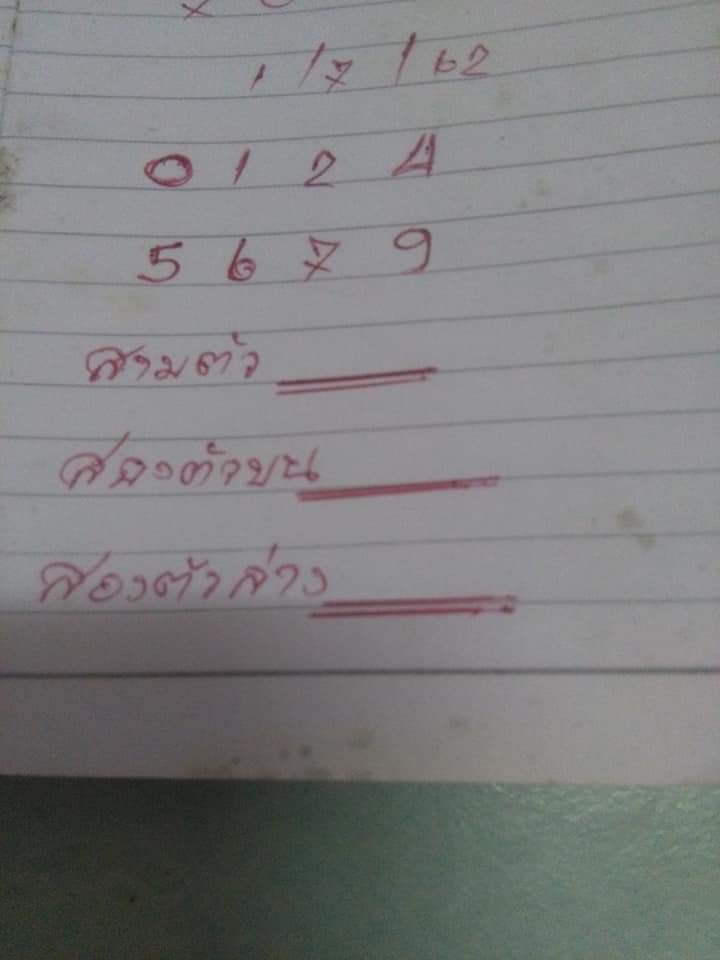 1/7/62
0 1 2 4
5 6 7 9
สามตัว
สองตัวบน
สองตัวล่าง